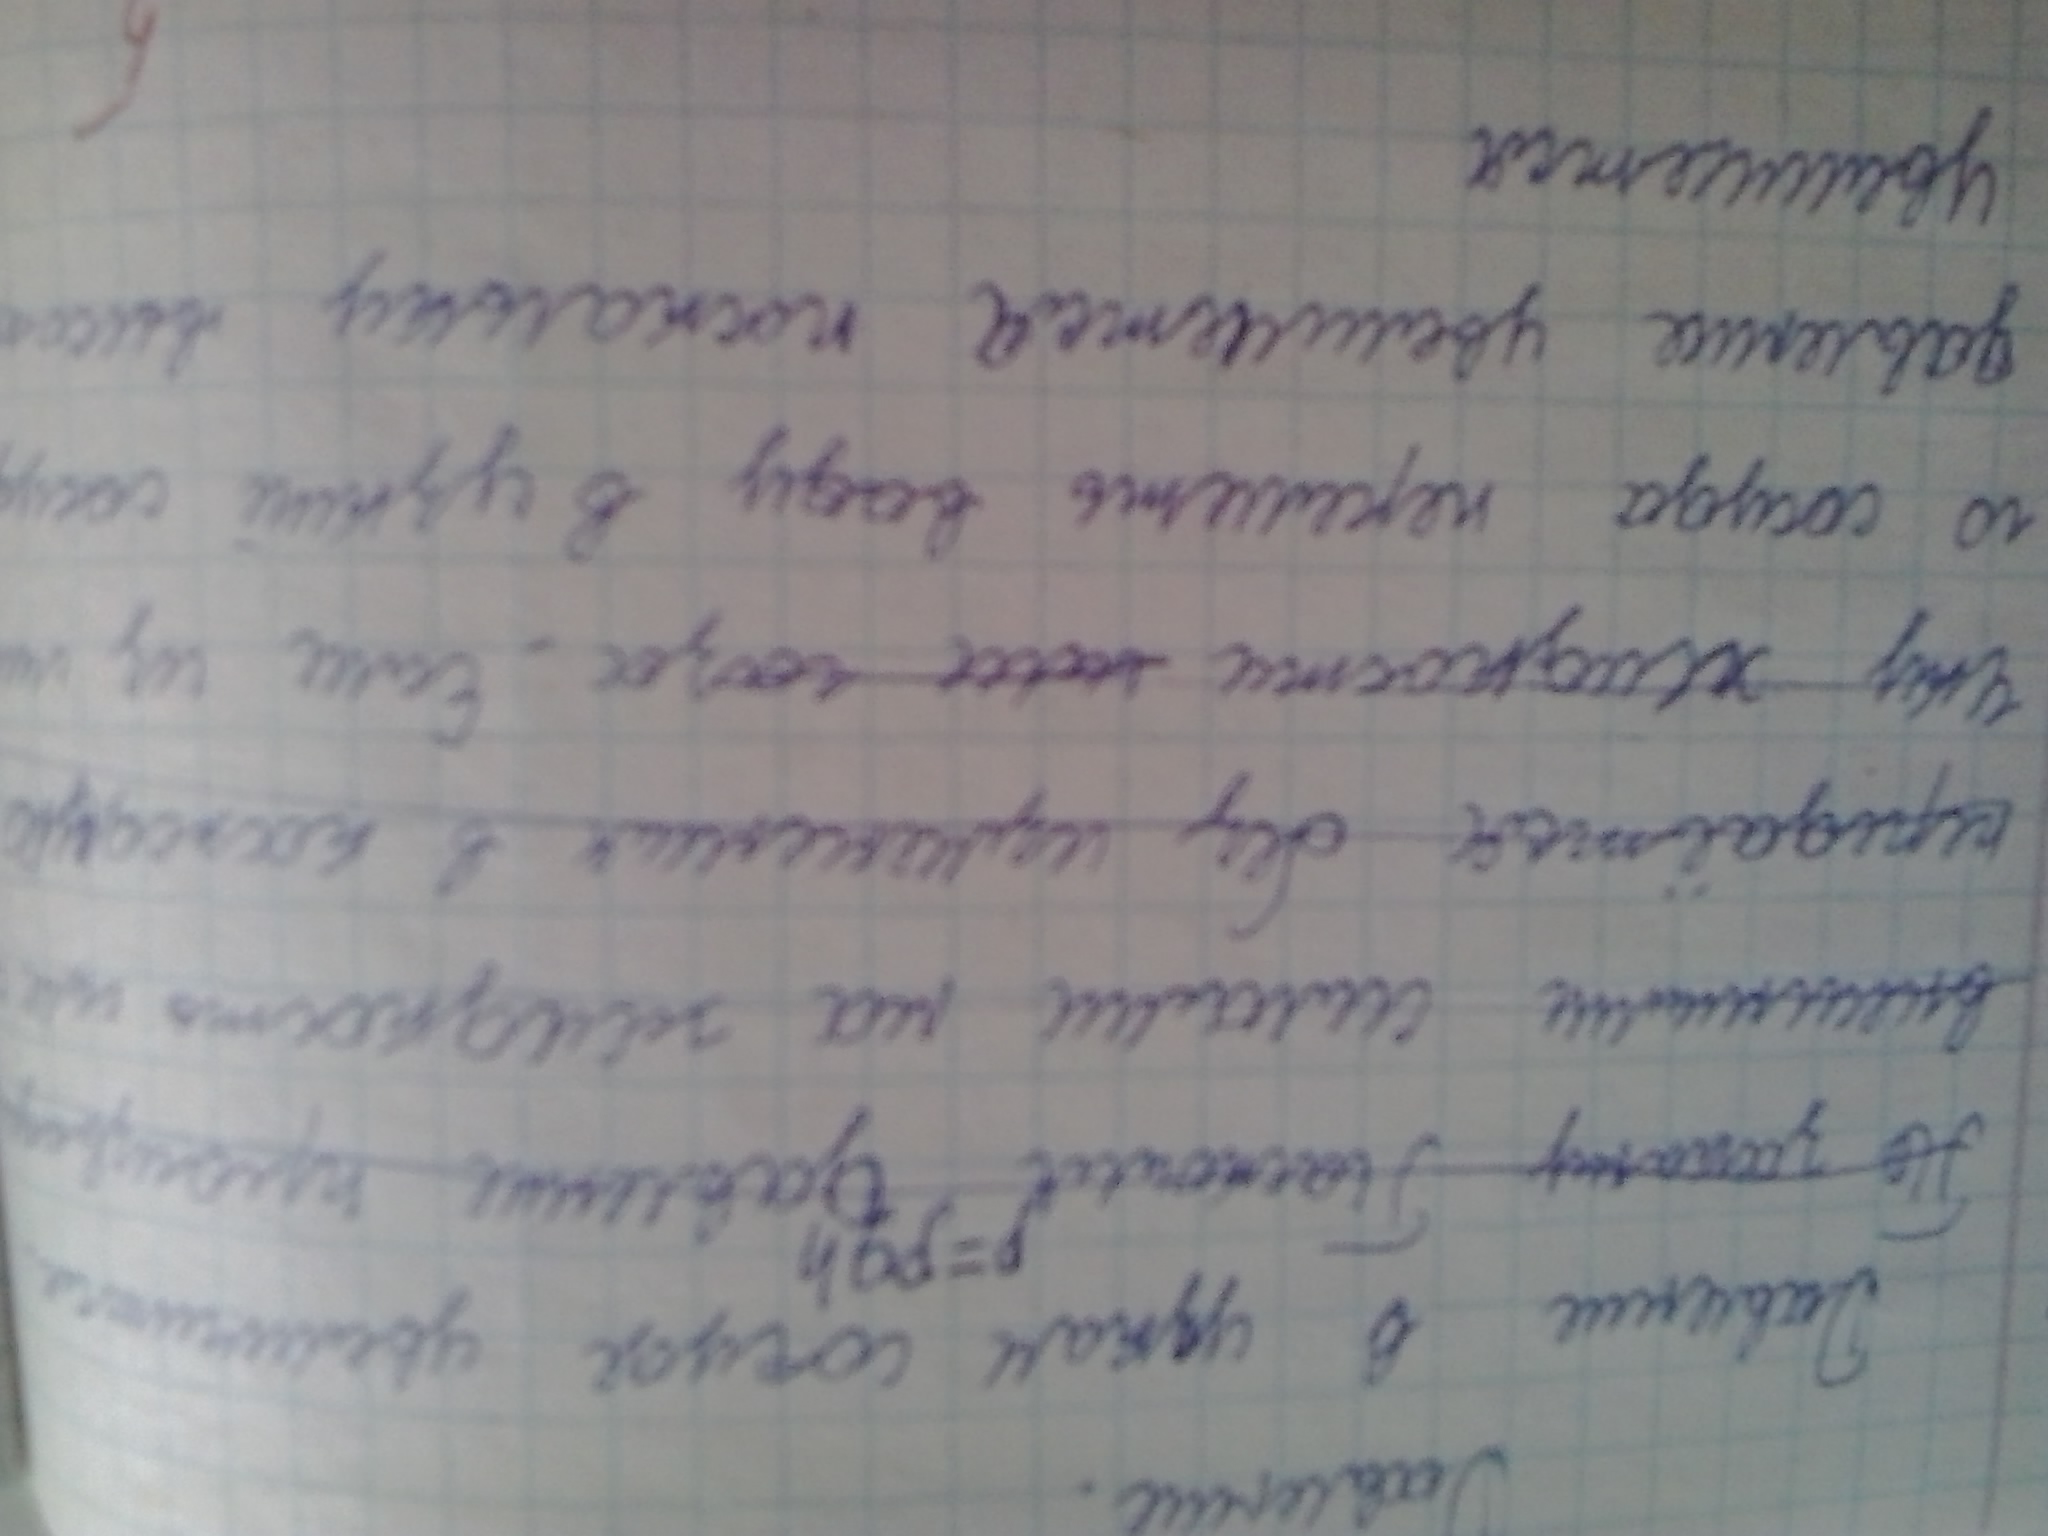 Давление.
Давление в узком сосуде увеличится.
p=ρgh
По закону Паскаля Давление производимое
внешними силами на жидкость
передаётся без изменения в каждую
жидкости газа. Если из
го сосуда перелить воду в узкий сосуд
давление увеличится поскольку высота
увеличится
5